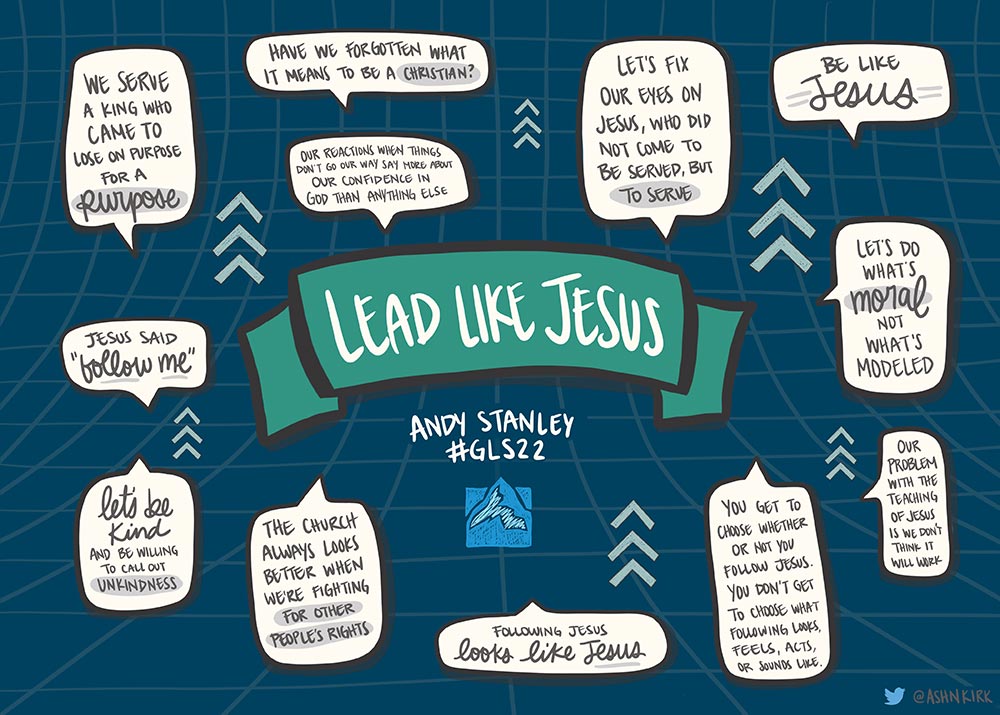 WE SERVE
A KING WHO
CAME TO
LOSE ON PURPOSE
FOR A
purpose
HAVE WE FORGOTTEN WHAT
IT MEANS TO BE A CHRISTIAN?
OUR REACTIONS WHEN THINGS
DON'T GO OUR WAY SAY MORE ABOUT
OUR CONFIDENCE IN
GOD THAN ANYTHING ELSE
LET'S FIX
OUR EYES ON
JESUS, WHO DID
NOT COME TO
BE SERVED, BUT
TO SERVE
BE LIKE
Jesus
LET'S DO
WHAT'S
moral
NOT
WHAT'S
MODELED
LEAD LIKE JESUS
ANDY STANLEY
#GLS22
JESUS SAID
"follow me"
let's be
Kind
AND BE WILLING
TO CALL OUT
UNKINDNESS
THE CHURCH
ALWAYS LOOKS
BETTER WHEN
WE'RE FIGHTING
FOR OTHER
PEOPLE'S RIGHTS
FOLLOWING JESUS
looks like Jesus
YOU GET TO
CHOOSE WHETHER
OR NOT YOU
FOLLOW JESUS.
YOU DON'T GET
TO CHOOSE WHAT
FOLLOWING LOOKS,
FEELS, ACTS,
OR SOUNDS LIKE.
OUR
PROBLEM
WITH THE
TEACHING
OF JESUS
IS WE DON'T
THINK IT
WILL WORK
@ASHNKIRK